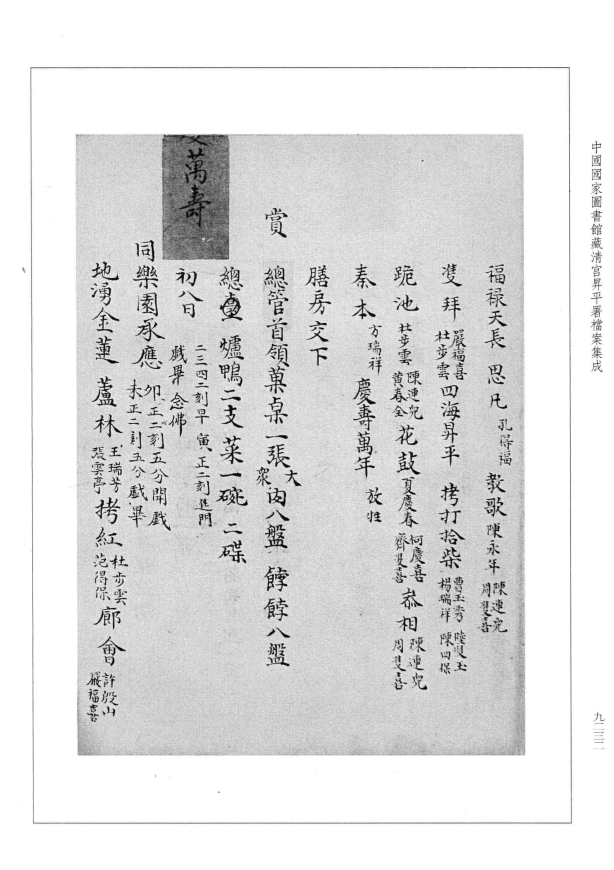 中國國家圖書館藏清宮昇平署檔案集成
福祿天長 思凡 孔得福 教歌 陳永年 陳連兒 周雙喜
雙拜 嚴福喜 杜步雲 四海昇平 拷打拾柴 曹玉秀 楊瑞祥 陸雙玉 陳四保
跪池 杜步雲 黃春全 陳連兒 花鼓 夏慶春 何慶喜 齊雙喜 恭相 陳連兒 周雙喜
奏本 方瑞祥 慶壽萬年 放牲
膳房交下
賞 總管首領菓桌一張 大衆 肉八盤 餑餑八盤
總 爐鴨二支菜一碗 二碟
二三四二刻早 寅正二刻進門
初八日 戲畢念佛
同樂園承應 卯正二刻五分開戲 未正二刻五分戲畢
地湧金蓮 蘆林 王瑞芳 張雲亭 拷紅 杜步雲 范得保 廊會 許殿山 嚴福喜
萬壽
九二三二